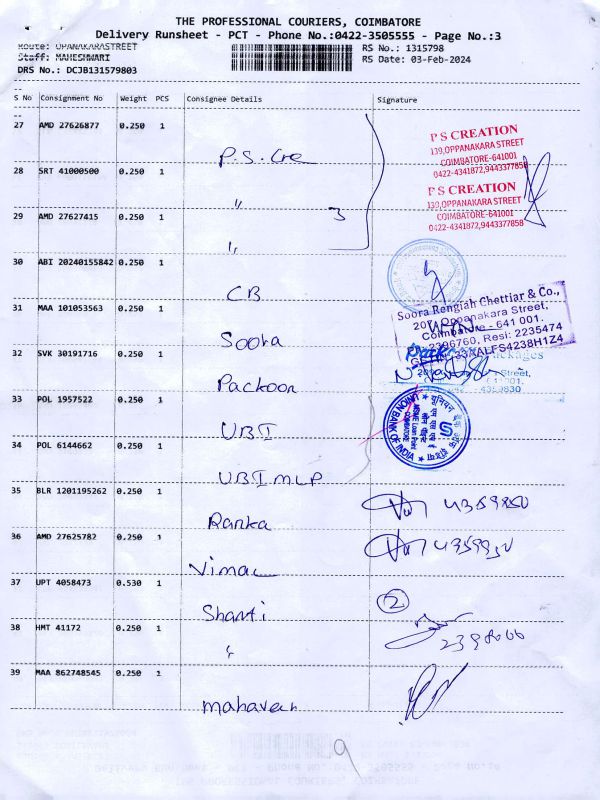 THE PROFESSIONAL COURIERS, COIMBATORE
Delivery Runsheet - PCT - Phone No.:0422-3505555 - Page No.:3
Route: OPANAKARASTREET
RS No.: 1315798
Staff: MAHESHWARI
RS Date: 03-Feb-2024
DRS No.: DCJB131579803
S No Consignment No Weight PCS Consignee Details Signature
27 AMD 27626877 0.250 1 P.S. Cre
P S CREATION
139,OPPANAKARA STREET
COIMBATORE-641001
0422-4341872,9443377858
28 SRT 41000500 0.250 1 "
P S CREATION
139,OPPANAKARA STREET
COIMBATORE-641001
0422-4341872,9443377858
29 AMD 27627415 0.250 1 "
3
30 ABI 20240155842 0.250 1 CB
31 MAA 101053563 0.250 1 Soora
Soora Rengiah Chettiar & Co.,
207, Oppanakara Street,
Coimbatore - 641 001.
2396760, Resi: 2235474
33XALFS4238H1Z4
32 SVK 30191716 0.250 1 Packoon
Packages
Street,
641001.
33 POL 1957522 0.250 1 UBI
UNION BANK OF INDIA
MSME Loan Point
COIMBATORE
34 POL 6144662 0.250 1 UBI MLP
35 BLR 1201195262 0.250 1 Ranka
4359850
36 AMD 27625782 0.250 1 Vimal
4359950
37 UPT 4058473 0.530 1 Shanti
2
38 HMT 41172 0.250 1 "
39 MAA 862748545 0.250 1 Mahaveer
9